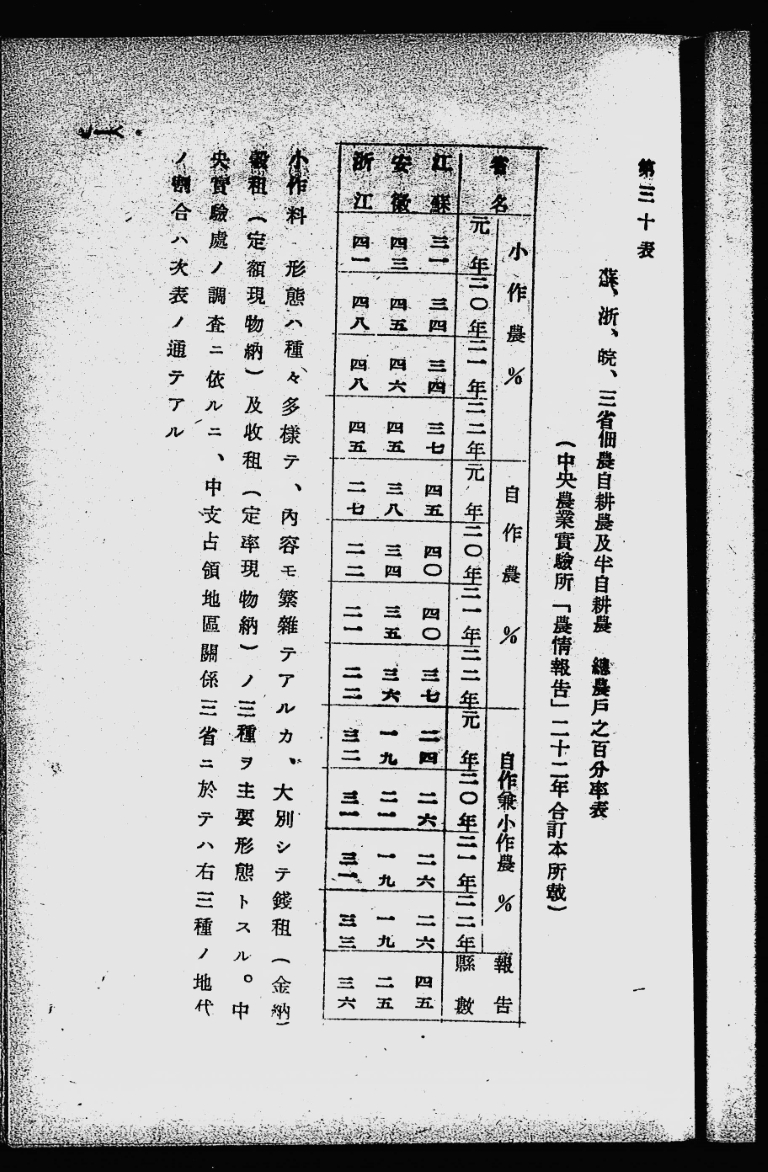 第三十表
蘇、浙、皖、三省佃農自耕農及半自耕農　總農戶之百分率表
(中央農業實驗所「農情報告」二十二年合訂本所載)
省名　小作農％　自作農％　自作兼小作農％　報告
元年　二〇年　二一年　二二年　元年　二〇年　二一年　二二年　元年　二〇年　二一年　二二年　縣數
江蘇　三一　三四　三四　三七　四五　四〇　四〇　三七　二四　二六　二六　二六　四五
安徽　四三　四五　四六　四五　三八　三四　三五　三六　一九　二一　一九　一九　二五
浙江　四一　四八　四八　四五　二七　二二　二一　二二　三二　三一　三一　三三　三六
小作料　形態ハ種々多樣テ、內容モ繁雜テアルカ、大別シテ錢租(金納)
穀租(定額現物納)及收租(定率現物納)ノ三種ヲ主要形態トスル。中
央實驗處ノ調査ニ依ルニ、中支占領地區關係三省ニ於テハ右三種ノ地代
ノ割合ハ次表ノ通テアル